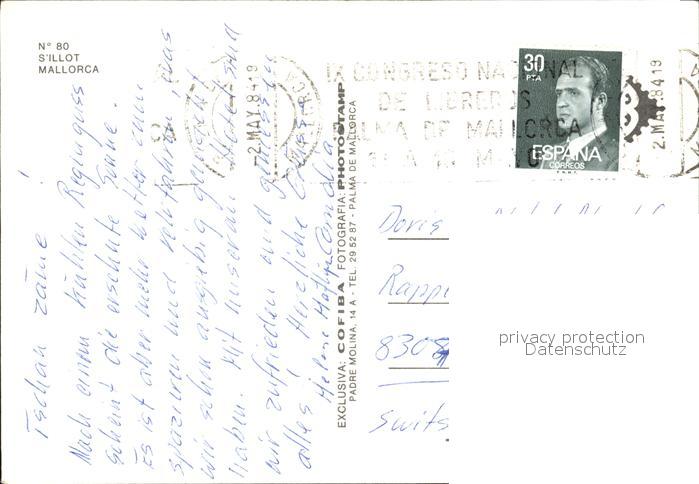 N° 80
S'ILLOT
MALLORCA
Tschau zäme!
Nach einem kühlen Regenguss
scheint die ersehnte Sonne.
Es ist aber mehr Wetter zum
spazieren und velofahren, was
wir schon ausgiebig genossen
haben. Mit unserem Hotel sind
wir zufrieden und geniessen
alles! Herzliche Grüsse
Helene
EXCLUSIVA: COFIBA FOTOGRAFIA: PHOTOSTAMP
PADRE MOLINA, 14 A - TEL. 29 52 87 - PALMA DE MALLORCA
-2.MAY.84 19
IX CONGRESO NACIONAL
DE LIBREROS
PALMA DE MALLORCA
2.MAY.84 19
30
PTA
ESPAÑA
CORREOS
Doris
Rappe
8308
Swits
privacy protection
Datenschutz